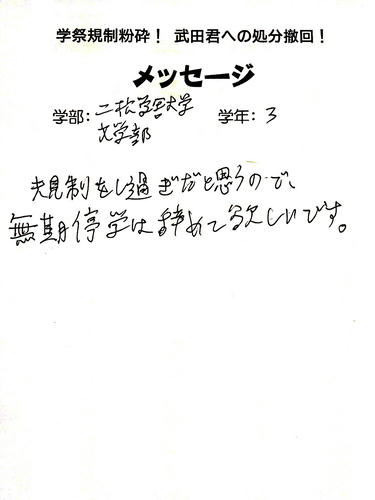 学祭規制粉砕！ 武田君への処分撤回！
メッセージ
学部： 二松学舎大学 学年： 3
文学部
規制をし過ぎだと思うので、
無期停学は辞めて欲しいです。